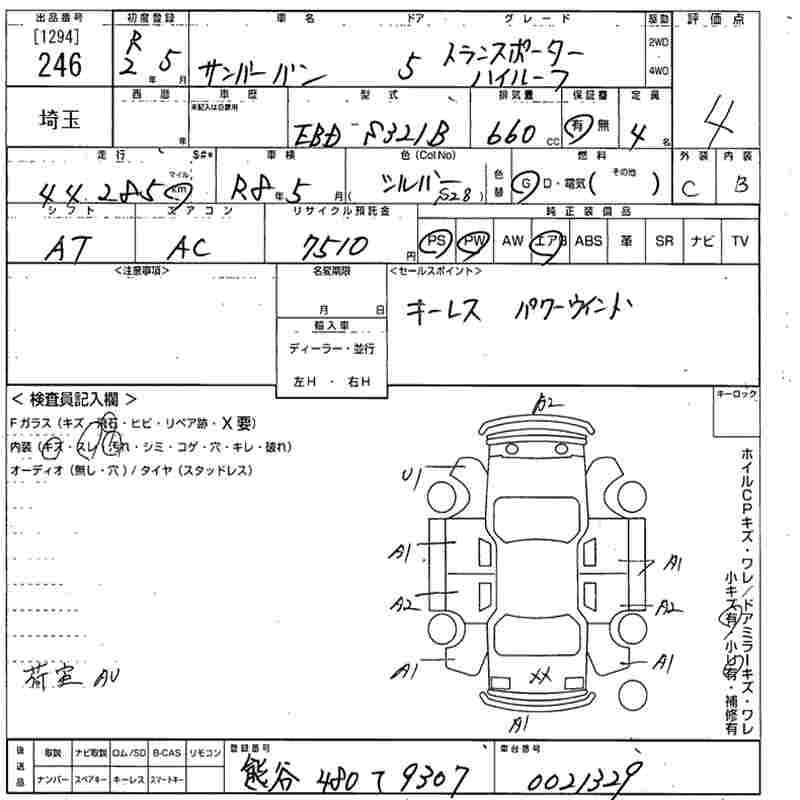 出品番号 初度登録 車名 ドア グレード 駆動 評価点
[1294] 246 R2年5月 サンバーバン 5 トランスポーター ハイルーフ 2WD 4WD 4
埼玉 西暦 年 車歴 未記入は自家用 型式 EBD S321B 排気量 660 CC 保証書 有 無 定員 4名
走行 S#* 車検 色(ColNo) 色替 燃料 外装 内装
44,285 マイル km R8年5月 シルバー (S28) G・D・電気( その他 ) C B
シフト エアコン リサイクル預託金 純正装備品
AT AC 7510円 PS PW AW エアB ABS 革 SR ナビ TV
<注意事項> 名変期限 <セールスポイント>
月 日
キーレス パワーウインド
輸入車
ディーラー・並行
左H ・ 右H
<検査員記入欄> キーロック
Fガラス(キズ・飛石・ヒビ・リペア跡・X要)
内装(キズ・スレ・汚れ・シミ・コゲ・穴・キレ・破れ)
オーディオ(無し・穴)/タイヤ(スタッドレス)
A2
U1
A1 A1
A2 A2
A1 A1
XX
A1
荷室 AU
ホイルCPキズ・ワレ/ドアミラーキズ・ワレ
小キズ有/小U有・補修有
後送品 取説 ナビ取説 ロム/SD B-CAS リモコン
ナンバー スペアキー キーレス スマートキー
登録番号 熊谷 480 て 9307
車台番号 0021329